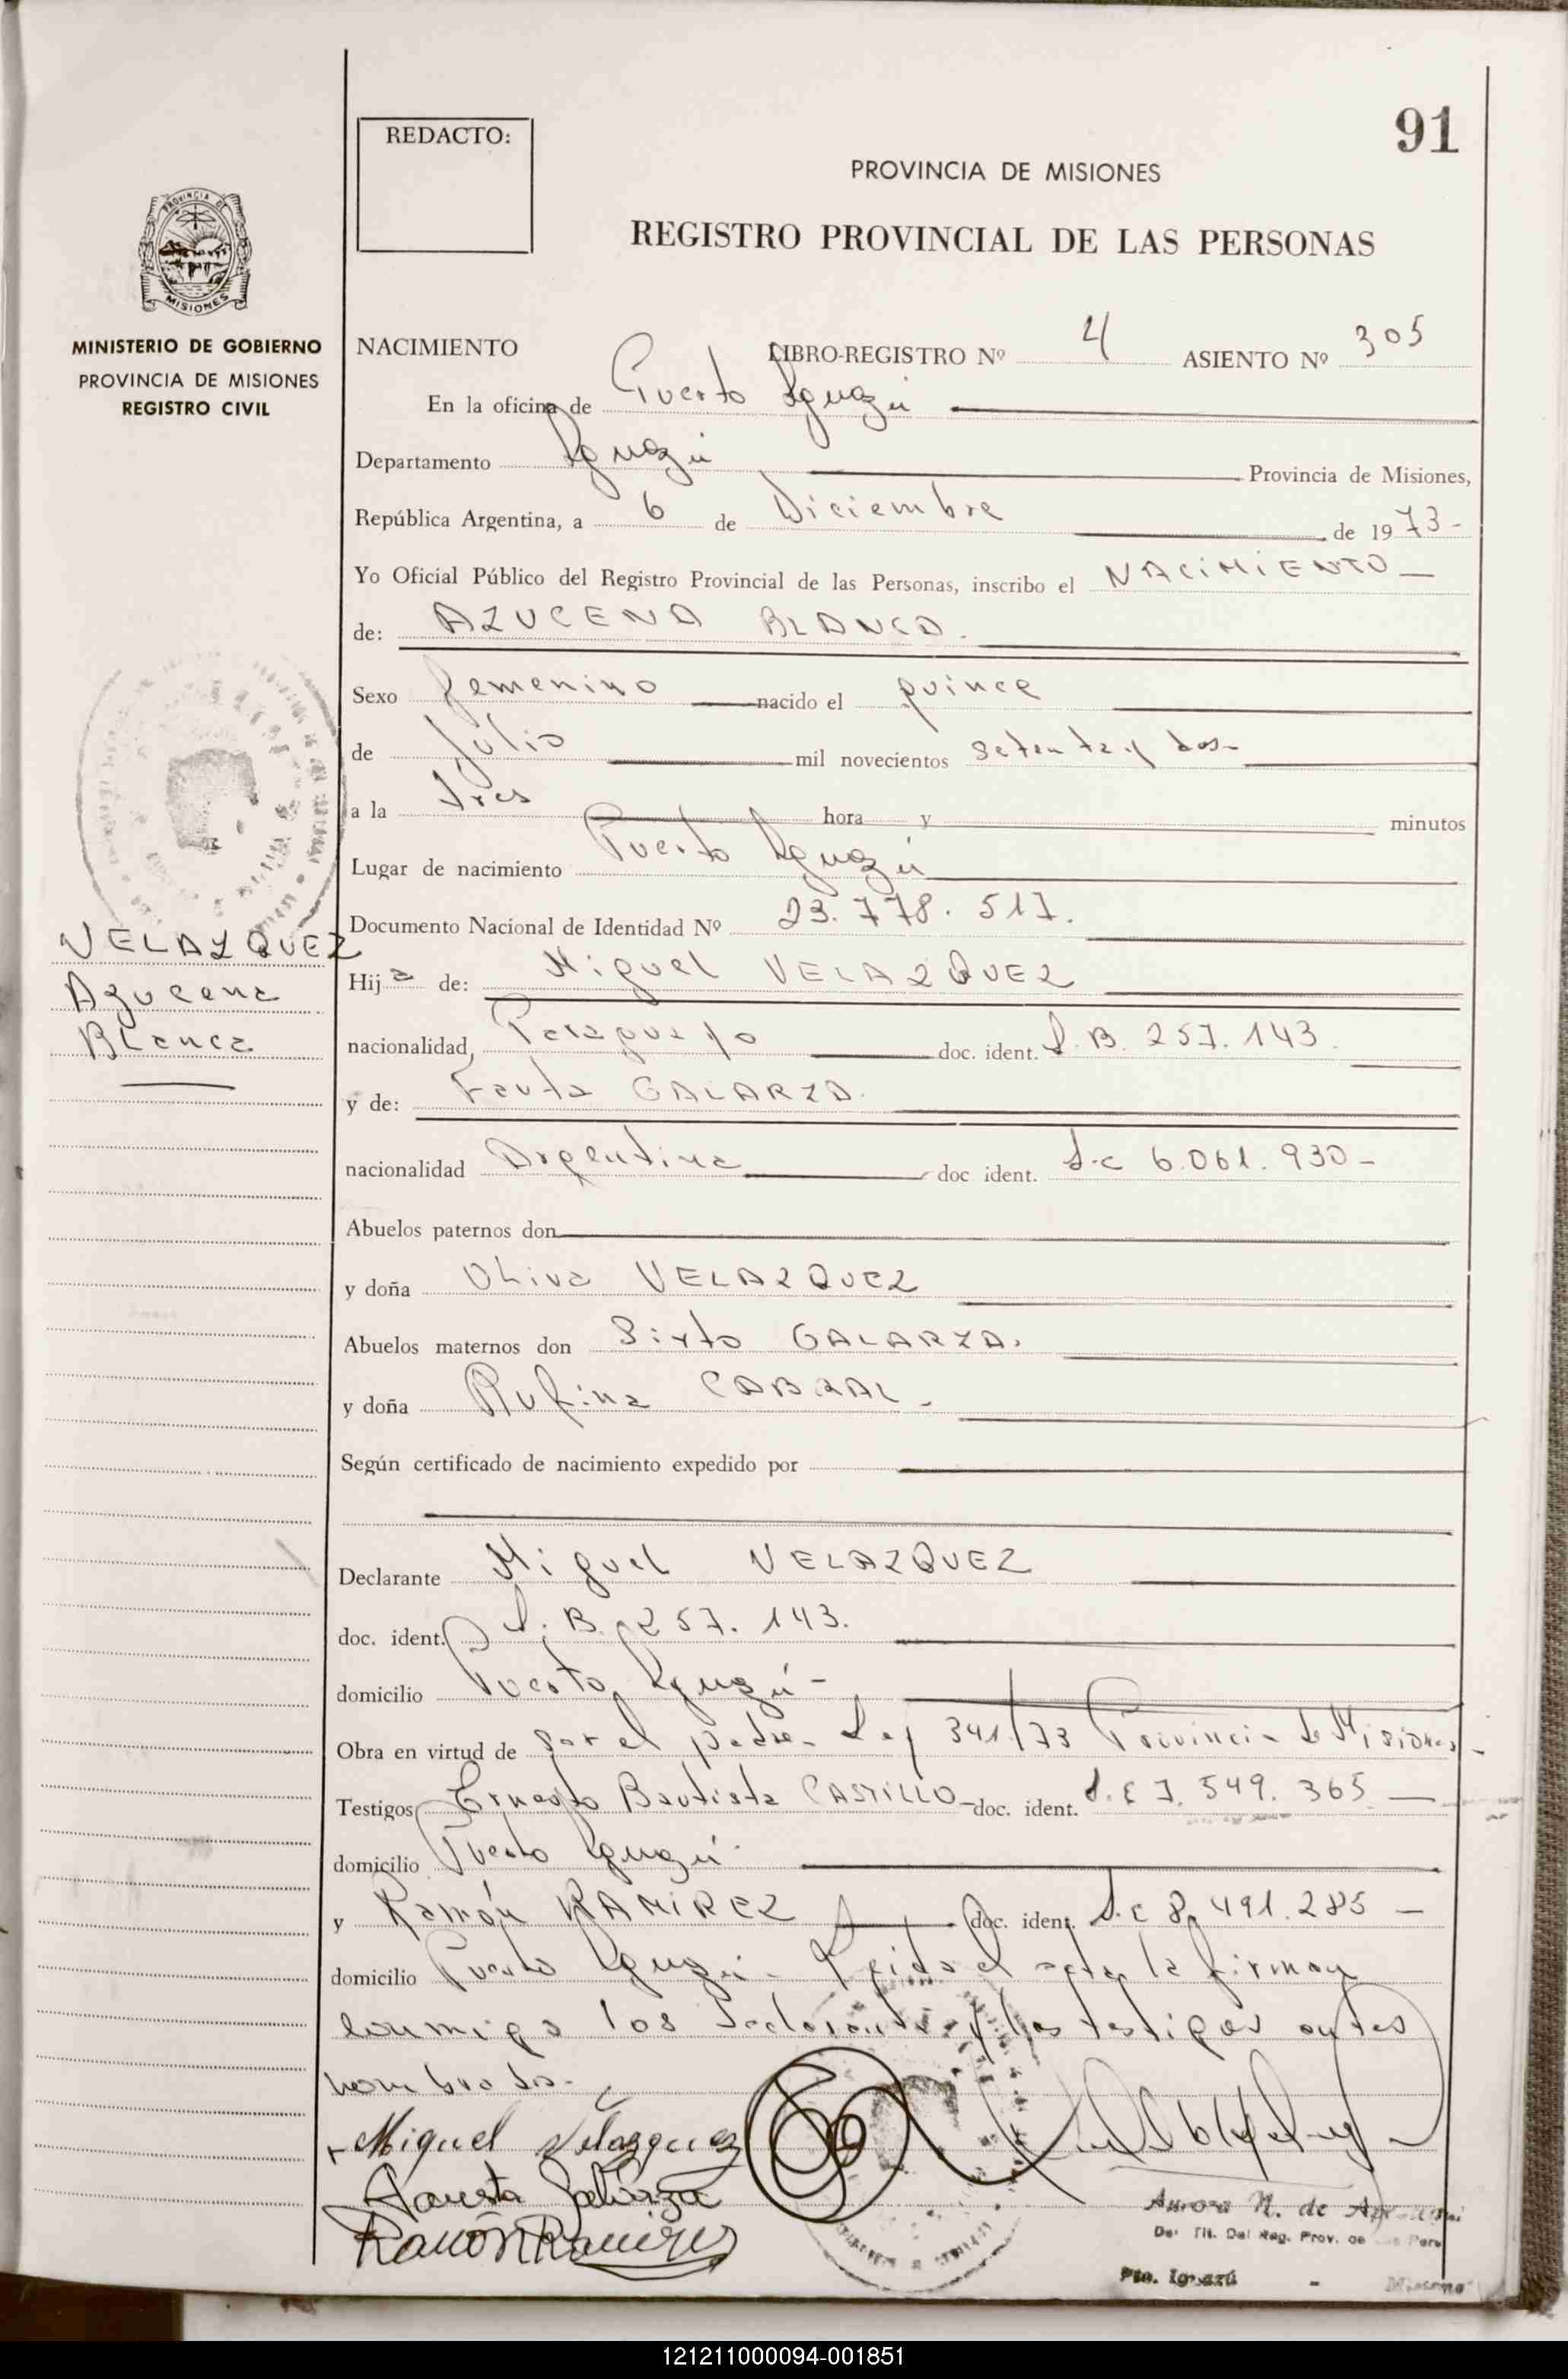 91
REDACTO:
PROVINCIA DE MISIONES
REGISTRO PROVINCIAL DE LAS PERSONAS
PROVINCIA DE
MISIONES
MINISTERIO DE GOBIERNO
PROVINCIA DE MISIONES
REGISTRO CIVIL
NACIMIENTO LIBRO-REGISTRO Nº 4 ASIENTO Nº 305
En la oficina de Puerto Iguazú
Departamento Iguazú Provincia de Misiones,
República Argentina, a 6 de Diciembre de 1973-
Yo Oficial Público del Registro Provincial de las Personas, inscribo el NACIMIENTO
de: AZUCENA BLANCA.
Sexo femenino nacido el quince
de Julio mil novecientos setenta y dos-
a la tres hora y minutos
Lugar de nacimiento Puerto Iguazú
Documento Nacional de Identidad Nº 23.778.517.
VELAZQUEZ
Azucena
Blanca
Hija de: Miguel VELAZQUEZ
nacionalidad, Paraguayo doc. ident. S.B. 257.143.
y de: Fausta GALARZA.
nacionalidad Argentina doc ident. L.C 6.061.930-
Abuelos paternos don
y doña Oliva VELAZQUEZ
Abuelos maternos don Sixto GALARZA.
y doña Rufina CABRAL-
Según certificado de nacimiento expedido por
Declarante Miguel VELAZQUEZ
doc. ident. B. 257.143.
domicilio Puerto Iguazú-
Obra en virtud de ser el padre- Ley 341/73 Provincia de Misiones-
Testigos Ernesto Bautista CASTILLO- doc. ident. L.E 7.549.365
domicilio Puerto Iguazú
y Ramón RAMIREZ doc. ident. L.E 8.491.285
domicilio Puerto Iguazú- Leida el acta, la firman
conmigo los declarantes y los testigos antes
nombrados-
Miguel Velazquez
Fausta Galarza
Ramón Ramirez
Aurora N. de
Del. Tit. Del Reg. Prov. de las Pers
Pto. Iguazú - Misiones
121211000094-001851